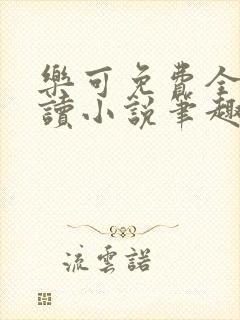 樂可免費全
讀小說筆趣
流雲諾